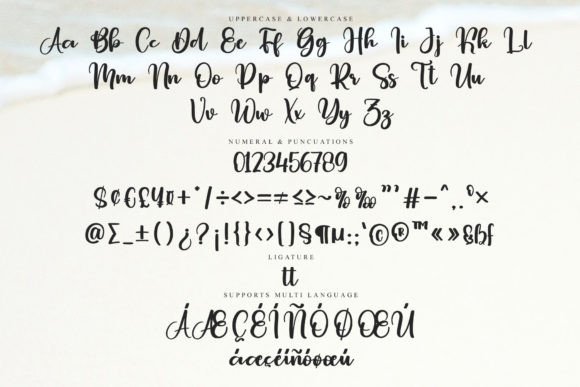 UPPERCASE & LOWERCASE
Aa Bb Cc Dd Ee Ff Gg Hh Ii Jj Kk Ll
Mm Nn Oo Pp Qq Rr Ss Tt Uu
Vv Ww Xx Yy Zz
NUMERAL & PUNCUATIONS
0123456789
$¢€£¥¤+*/÷<>=≠≤≥~%‰"'#-^,.°×
@∑_±()¿?¡!{}‹›[]§¶µ:;'©®™«»&ßf
LIGATURE
tt
SUPPORTS MULTI LANGUAGE
ÁÆÇÉÍÑÓØŒÚ
áæçéíñóøœú